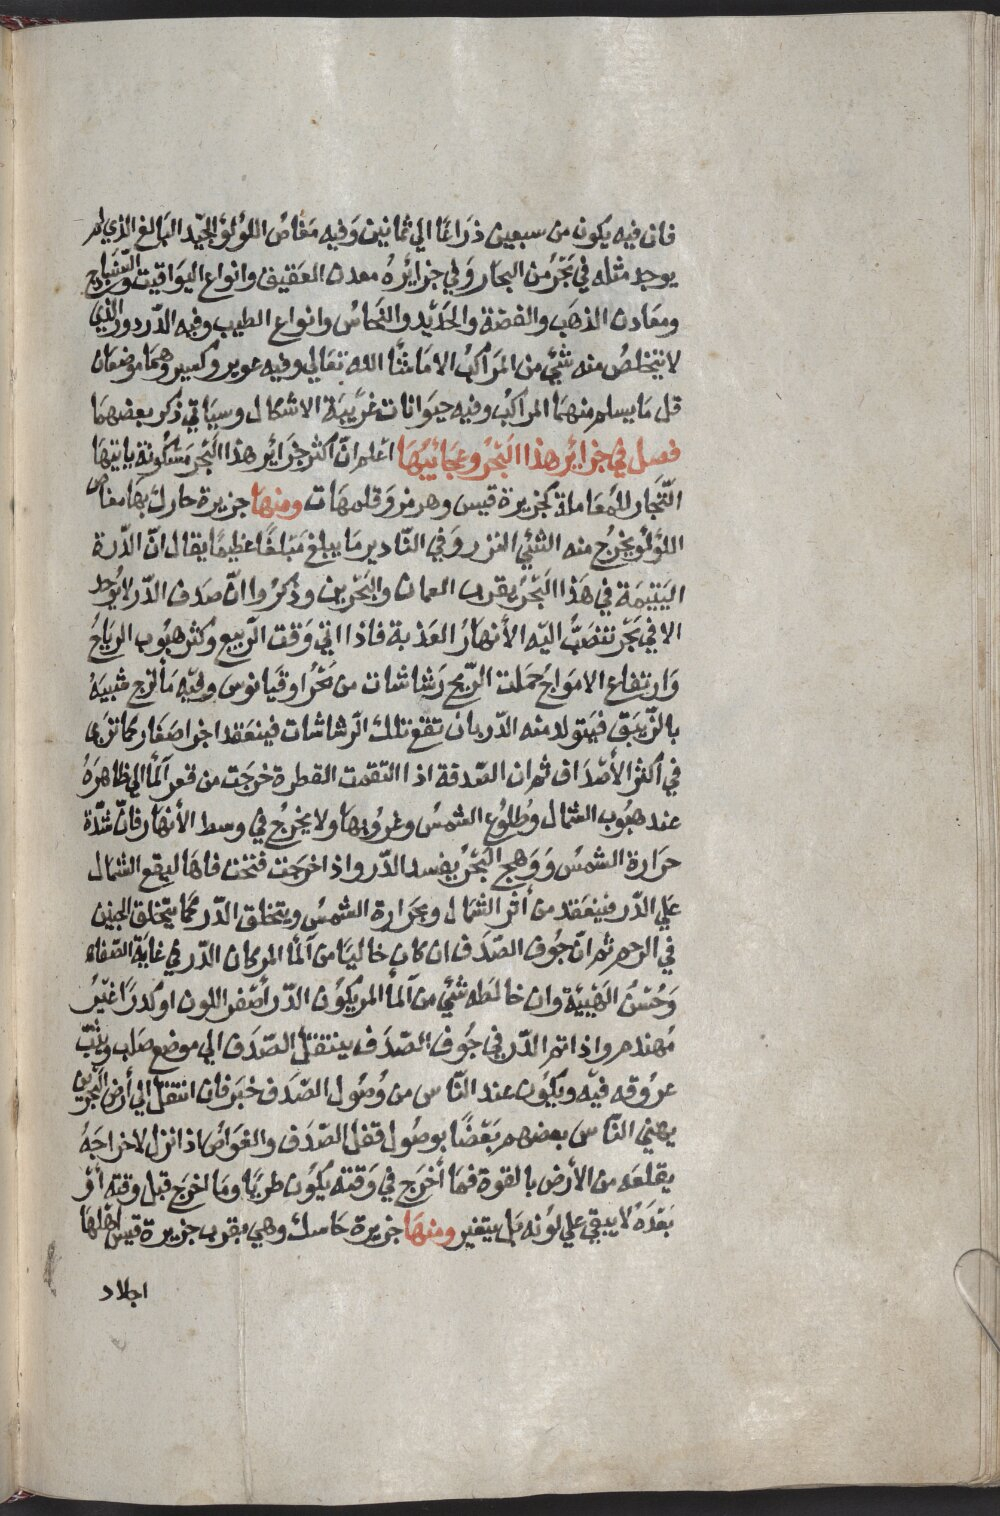 فان فيه يكون من سبعين ذراعا الي ثمانين وفيه مغاص اللؤلؤ الجيد البالغ الذي لم
يوجد مثله في بحر من البحار وفي جزائره معدن العقيق وانواع اليواقيت والسنباج
ومعادن الذهب والفضة والحديد والنحاس وانواع الطيب وفيه الدردور الذي
لا يتخلص منه شئ من المراكب الا ما شآ الله تعالي وفيه عوير وكسير وهما موضعان
قل ما يسلم منهما المراكب وفيه حيوانات غريبة الاشكال وسياتي ذكر بعضهما
فصل في جزائر هذا البحر وعجائبها اعلم ان اكثر جزائر هذا البحر مسكونة ياتيها
التجار للمعاملة كجزيرة قيس وهرمز وقلهات ومنها جزيرة حارك بها مغاص
اللؤلؤ يخرج منه الشئ النزر وفي النادير ما يبلغ مبلغا عظيما يقال ان الدرة
اليتيمة في هذا البحر يقرب العمان والبحرين وذكروا ان صدف الدر لا يوجد
الا في بحر تنصب اليه الأنهار العذبة فاذا اتي وقت الربيع وكثر هبوب الرياح
وارتفاع الامواج حملت الريح رشاشات من بحر اوقيانوس وفيه ما لزج شبيه
بالزيبق فيتولد منه الدر بان تقع تلك الرشاشات فينعقد اجزا صغار كما تري
في اكثر الأصداف ثم ان الصدفة اذا التقمت القطرة خرجت من قعر آلمآ الي ظاهره
عند هبوب الشمال وطلوع الشمس وغروبها ولا يخرج في وسط الأنهار فان شدة
حرارة الشمس ووهج البحر يفسد الدر واذا خرجت فتحت فاها ليقع الشمال
علي الدر فينعقد من أثر الشمال وبحرارة الشمس ويتخلق الدر كما يتخلق الجنين
في الرحم ثم ان جوف الصدف ان كان خاليا من آلمآ المر كان الدر في غاية الصفاء
وحسن الهيئة وان خالطه شئ من آلمآ المر يكون الدر أصفر اللون او كدرا غير
مهندم واذا تم الدر في جوف الصدف ينتقل الصدف الي موضع صلب وينبت
عروقه فيه ويكون عند الناس من وصول الصدف خبر فان انتقل الي أرض البحرين
يهني الناس بعضهم بعضا بوصول قفل الصدف والغواص اذا نزل لاخراجه
يقلعه من الأرض بالقوة فما أخرج في وقته يكون طريا وما اخرج قبل وقته أو
بعده لا يبقي علي لونه بل يتغير ومنها جزيرة حاسك وهي بقرب جزيرة قيس اهلها
اجلاد